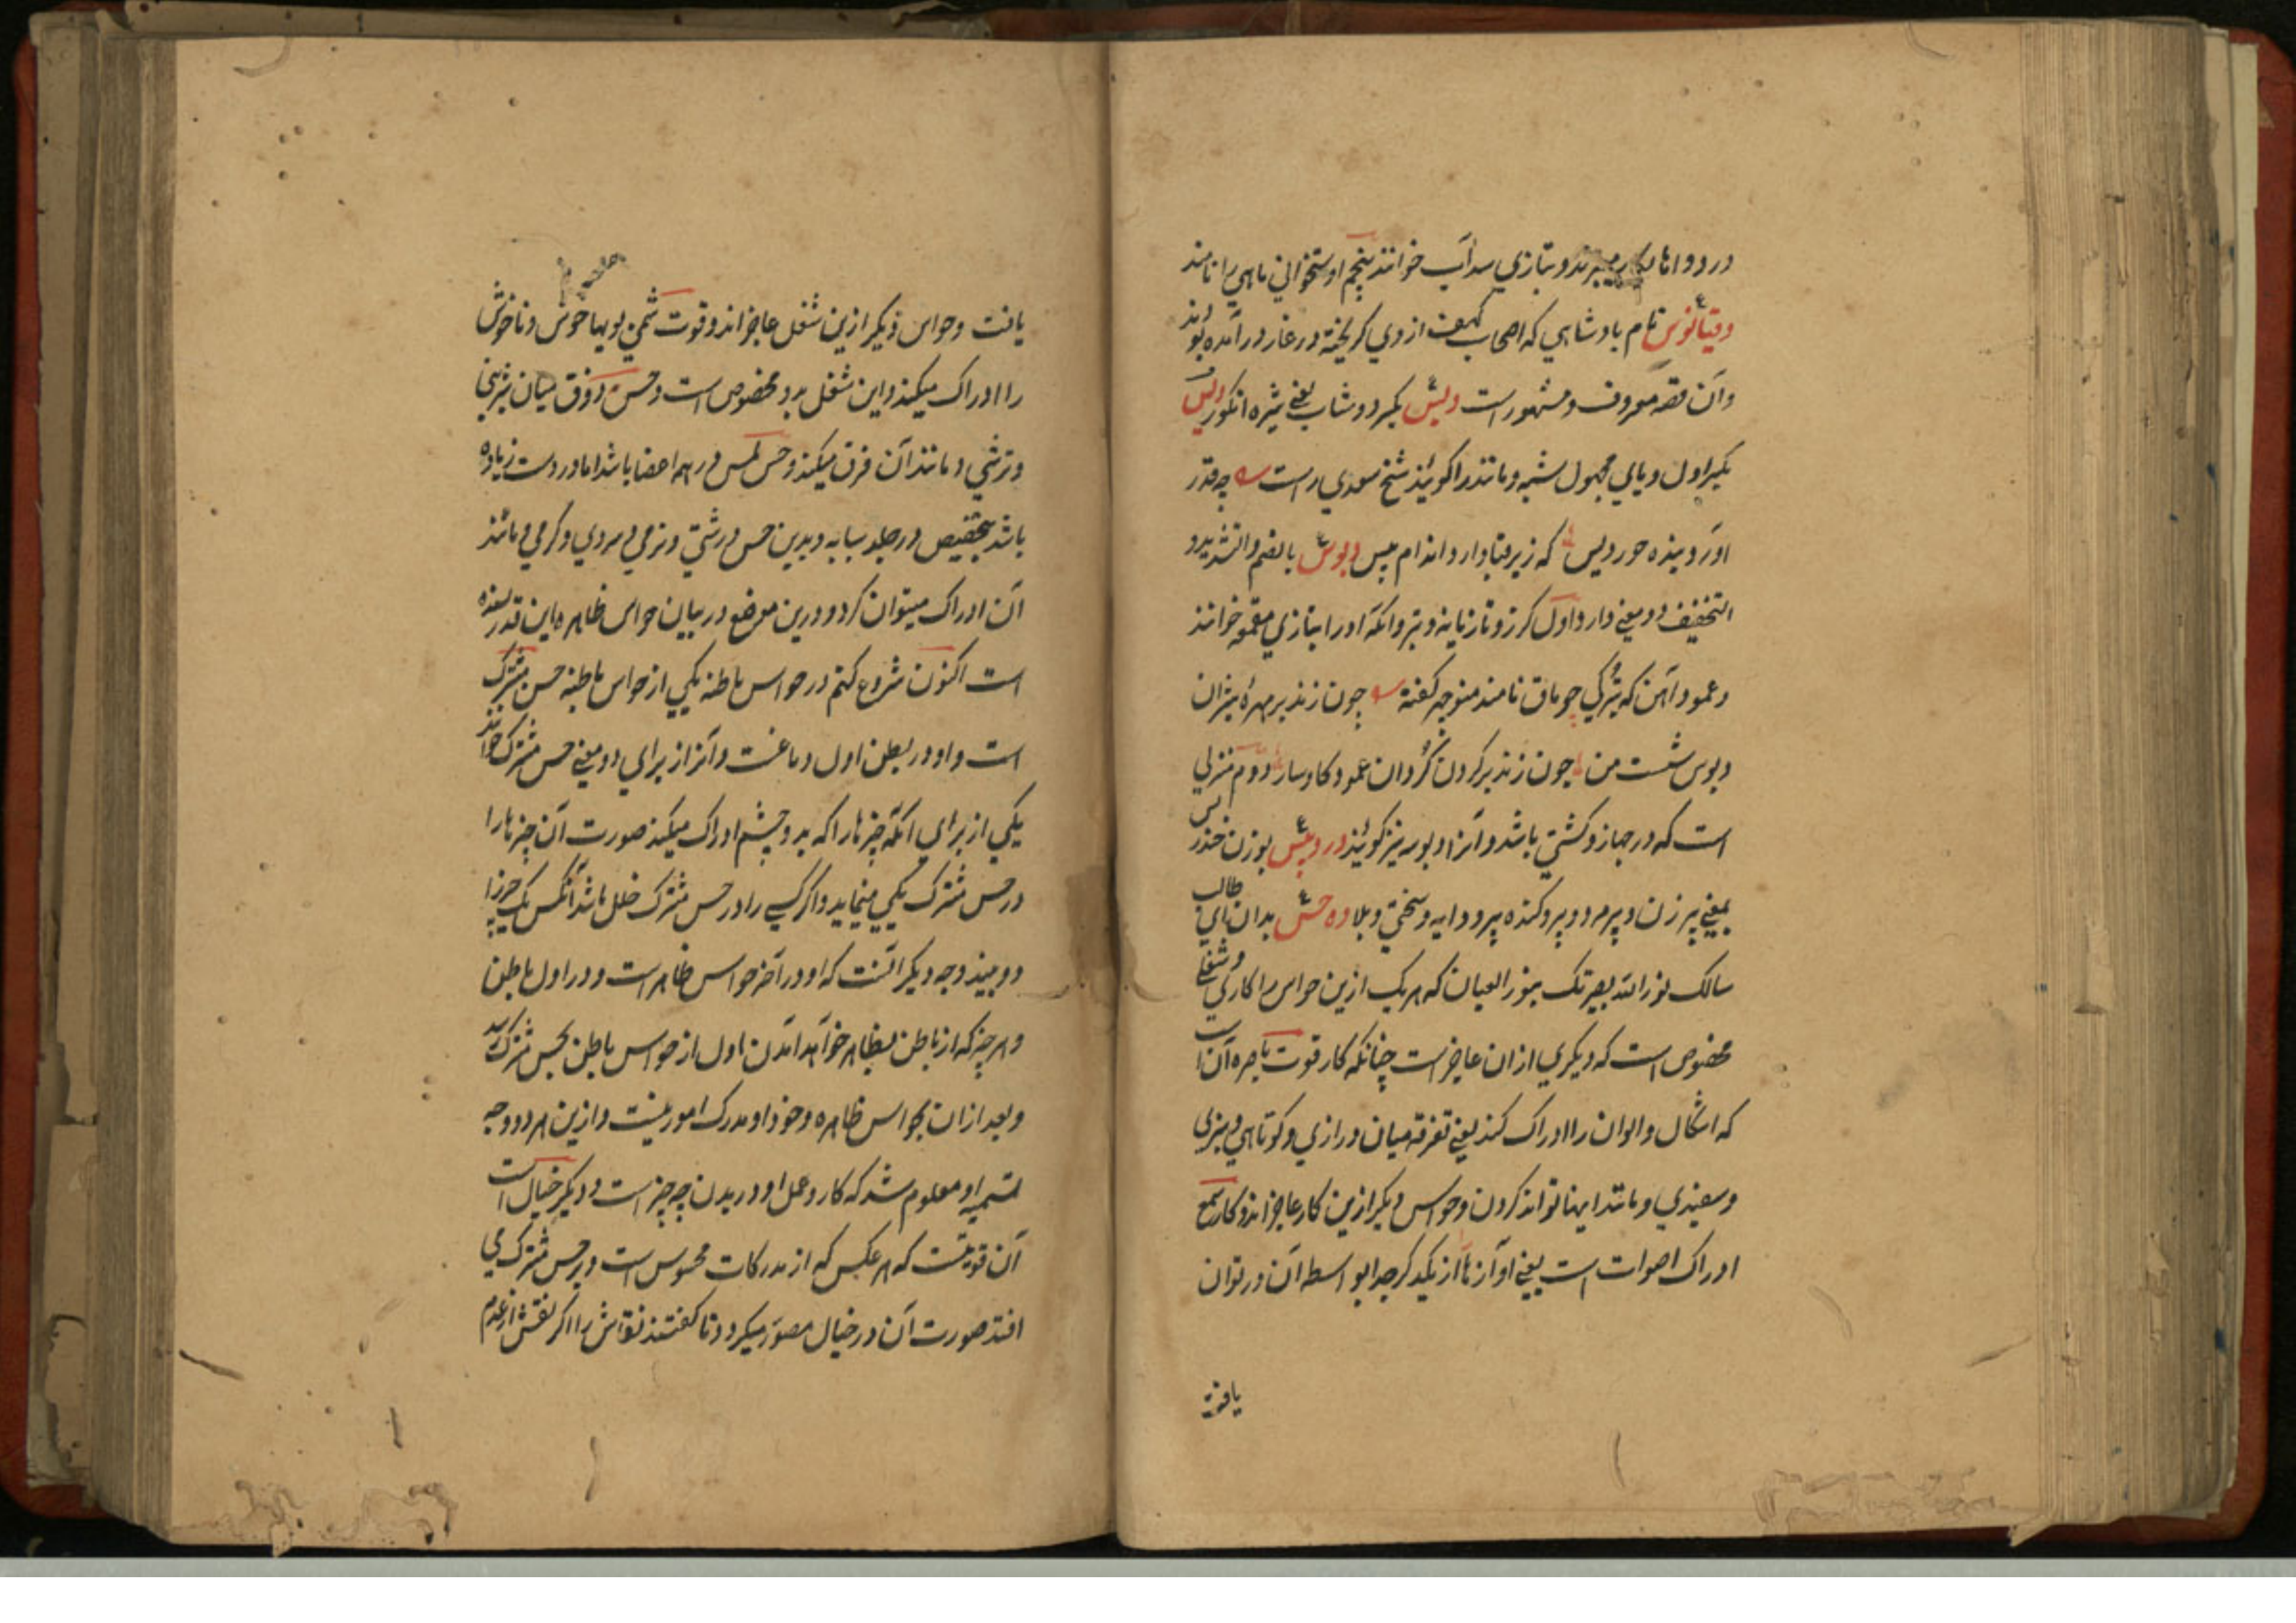 در دواها بکار میبرند و بتازی سداب خوانند پنجم استخوانی ماهی را نامند
دقیانوس نام بادشاهی که اصحاب کهف از وی کریخته در غار در آمده بودند
و آن قصه معروف و مشهور است دبش بکسر دوشاب یعنی شیره انکور دیس
بکسر اول و یای مجهول شبه و مانند را کویند شیخ سعدی راست چه قدر
آورد بنده حوردیس که زیر قبا دارد اندام پیس دبوس بالضم والتشدید و
التخفیف دو معنی دارد اول کرز و تازیانه و تبر و آنکه او را بتازی مقمعه خوانند
و عمود آهن که بترکی چوماق نامند منوچهر کفته چون زند بر مهره شیران
دبوس شست من چون زند بر کردن کردان عمود کاوسار دوم منزلی
است که در جهاز و کشتی باشد و آنرا دبوسه نیز کویند دردبیس بوزن خندریس
بمعنی پیر زن و پیر مرد و پیر و کنده پیر و دایه و سختی و بلا ده حس بدان ای طالب
سالک نور الله بصیرتک بنور العیان که هر یک ازین حواس را کاری و شغلی
مخصوص است که دیکری از ان عاجز است چنانکه کار قوت باصره آن است
که اشکال و الوان را ادراک کند یعنی تفرقه میان درازی و کوتاهی و سبزی
و سفیدی و مانند اینها تواند کردن و حواس دیکر ازین کار عاجز اند و کار سمع
ادراک اصوات است یعنی آوازها از یکدکر جدا بواسطه آن در توان
یافت
یافت و حواس دیکر ازین شغل عاجز اند و قوت شمی بویها خوش و ناخوش
را ادراک میکند و این شغل بدو مخصوص است و حس ذوق میان شیرینی
و ترشی و مانند آن فرق میکند و حس لمس در همه اعضا باشد اما در دست زیاده
باشد بتخصیص در جلد سبابه و بدین حس درشتی و نرمی و سردی و کرمی و مانند
آن ادراک میتوان کرد و درین موضع در بیان حواس ظاهره این قدر بسنده
است اکنون شروع کنم در حواس باطنه یکی از حواس باطنه حس مشترک
است و او در بطن اول دماغست و آنرا از برای دو معنی حس مشترک خوانند
یکی از برای آنکه چیزها را که بدو چشم ادراک میکند صورت آن چیزها را
در حس مشترک یکی مینماید و اکر کسی را در حس مشترک خلل باشد آنکس یک چیز را
دو بیند وجه دیکر آنست که او در آخر حواس ظاهر است و در اول باطن
و هر چیز که از باطن بظاهر خواهد آمدن اول از حواس باطن بحس مشترک رسد
و بعد از ان بحواس ظاهره و خود او مدرک امور نیست و ازین هر دو وجه
تسمیه او معلوم شد که کار و عمل او در بدن چه چیز است و دیکر خیال است
آن قوتیست که هر عکس که از مدرکات محسوس است و بر حس مشترک می
افتد صورت آن در خیال مصور میکردد تا کفتند نقاش را اکر نقش از عدم